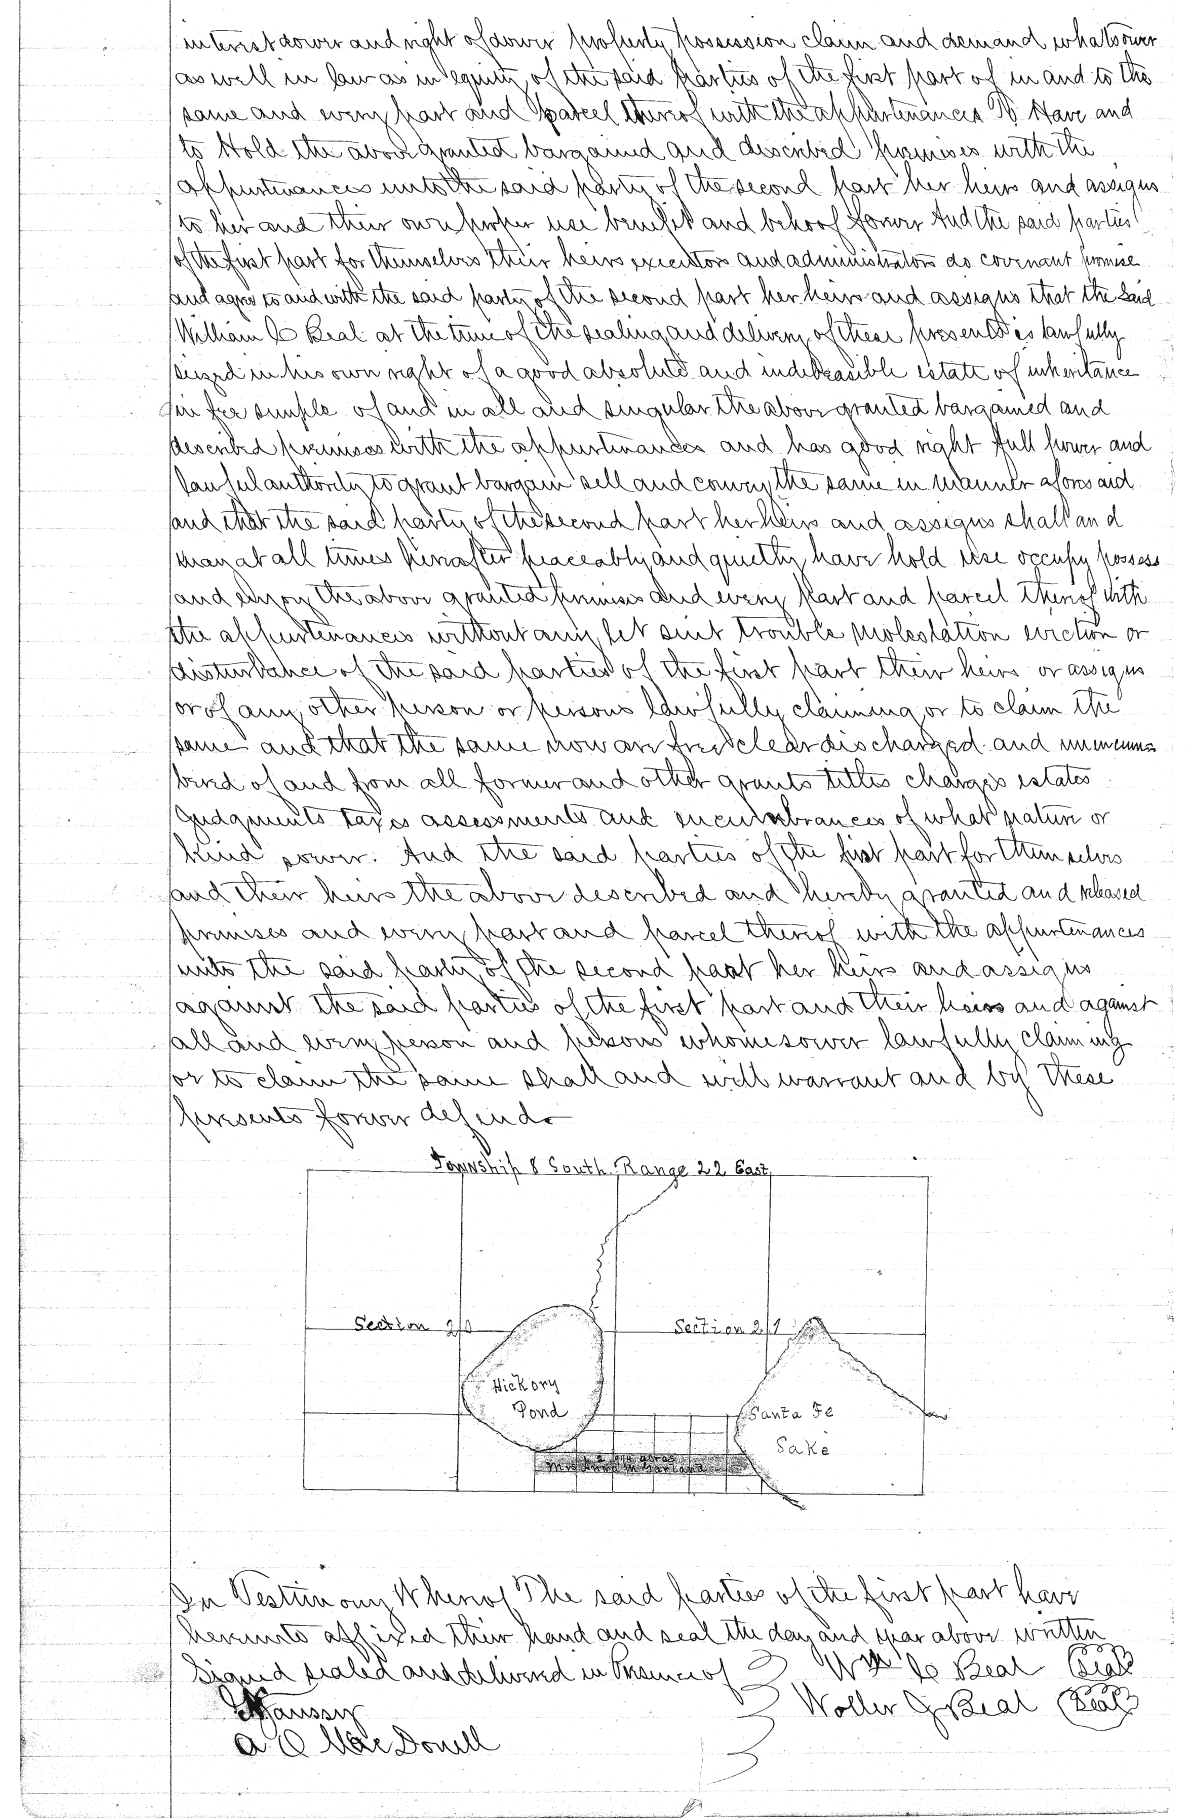 interest dower and right of dower property possession claim and demand whatsoever
as well in law as in equity of the said parties of the first part of in and to the
same and every part and parcel thereof with the appurtenances To Have and
to Hold the above granted bargained and described premises with the
appurtenances unto the said party of the second part her heirs and assigns
to her and their own proper use benefit and behoof forever And the said parties
of the first part for themselves their heirs executors and administrators do covenant promise
and agree to and with the said party of the second part her heirs and assigns that the Said
William C Beal at the time of the sealing and delivery of these presents is lawfully
seized in his own right of a good absolute and indefeasible estate of inheritance
in fee simple of and in all and singular the above granted bargained and
described premises with the appurtenances and has good right full power and
lawful authority to grant bargain sell and convey the same in manner aforesaid
and that the said party of the second part her heirs and assigns shall and
may at all times hereafter peaceably and quietly have hold use occupy possess
and enjoy the above granted premises and every part and parcel thereof with
the appurtenances without any let suit trouble molestation eviction or
disturbance of the said parties of the first part their heirs or assigns
or of any other person or persons lawfully claiming or to claim the
same and that the same now are free clear discharged and unincum
bered of and from all former and other grants titles charges estates
Judgments taxes assessments and incumbrances of what nature or
kind soever. And the said parties of the first part for themselves
and their heirs the above described and hereby granted and released
premises and every part and parcel thereof with the appurtenances
unto the said party of the second part her heirs and assigns
against the said parties of the first part and their heirs and against
all and every person and persons whomesoever lawfully claiming
or to claim the same shall and will warrant and by these
presents forever defend.
Township 8 South, Range 22 East
Section 20
Section 21
Hickory
Pond
Santa Fe
Lake
In Testimony Whereof The said parties of the first part have
hereunto affixed their hand and seal the day and year above written
Signed sealed and delivered in Presence of
Wm C Beal Seal
Woller G Beal Seal
A O MacDonell